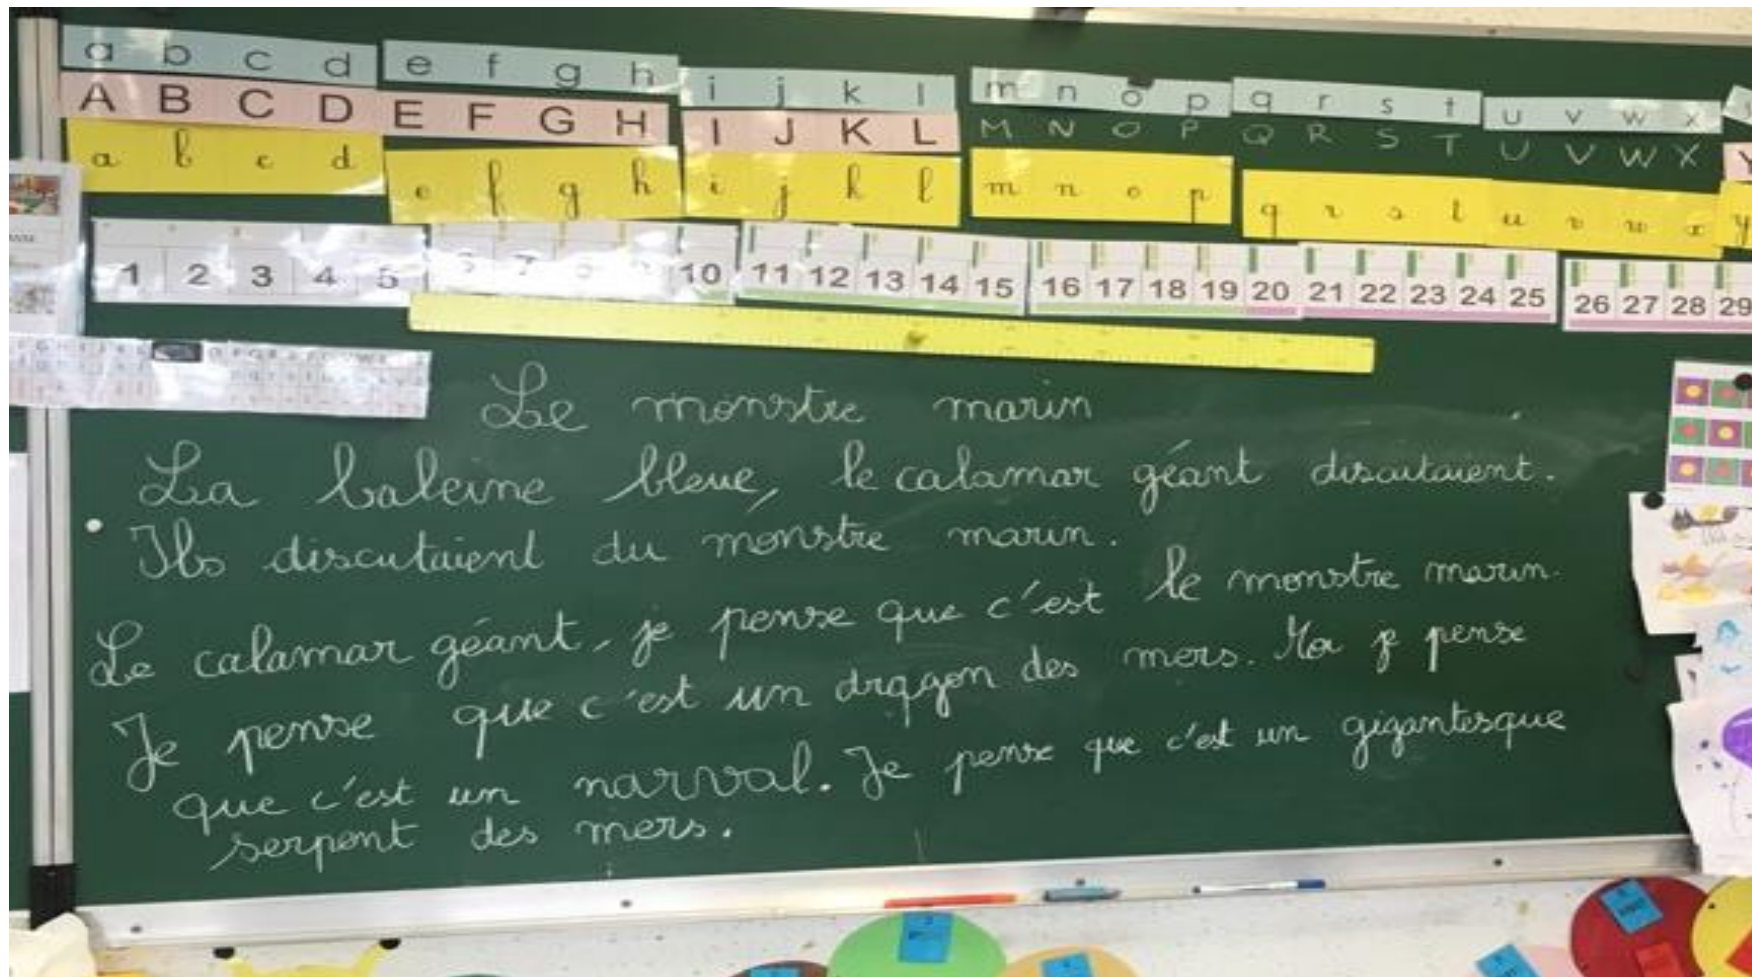 a b c d e f g h i j k l m n o p q r s t u v w x
A B C D E F G H I J K L M N O P Q R S T U V W X Y
a b c d e f g h i j k l m n o p q r s t u v w x y
1 2 3 4 5 6 7 8 9 10 11 12 13 14 15 16 17 18 19 20 21 22 23 24 25 26 27 28 29
Le monstre marin
La baleine bleue, le calamar géant discutaient.
Ils discutaient du monstre marin.
Le calamar géant, je pense que c'est le monstre marin.
Je pense que c'est un dragon des mers. Moi je pense
que c'est un narval. Je pense que c'est un gigantesque
serpent des mers.